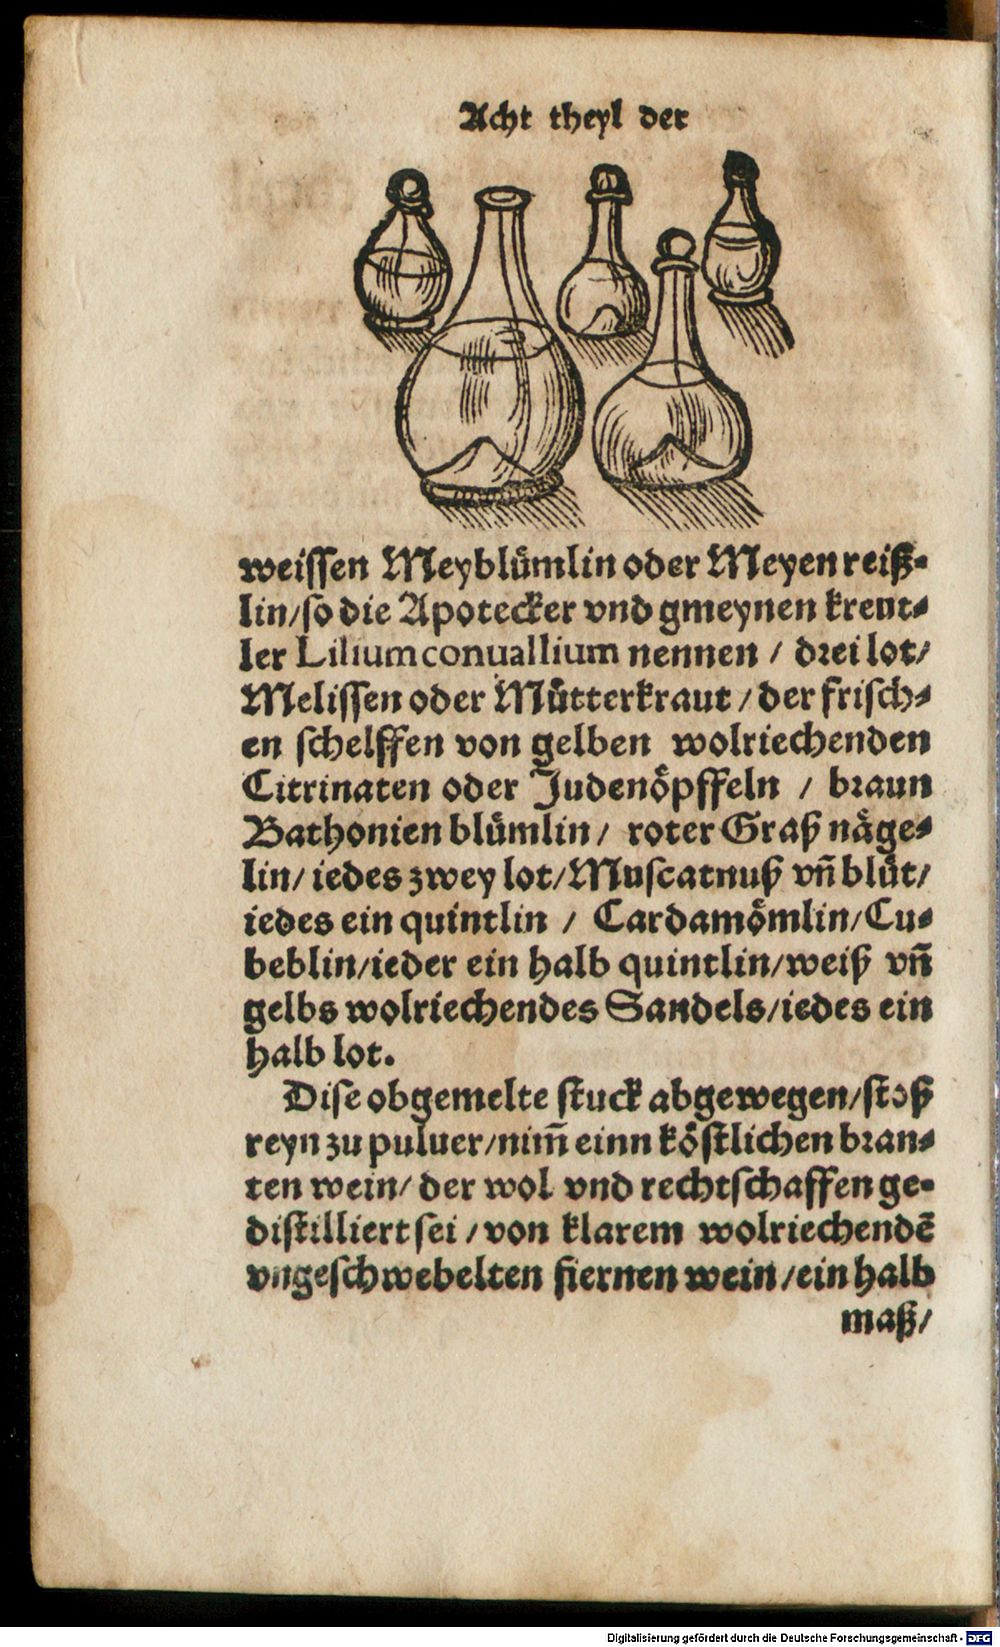 Acht theyl der
weissen Meyblůmlin oder Meyenreiß-
lin/so die Apotecker vnd gmeynen kreut-
ler Lilium conuallium nennen / drei lot/
Melissen oder Můtterkraut / der frisch-
en schelffen von gelben wolriechenden
Citrinaten oder Judenöpffeln / braun
Bathonien blůmlin / roter Graß näge-
lin/ iedes zwey lot/Muscatnuß vñ blůt/
iedes ein quintlin / Cardamömlin/Cu-
beblin/ieder ein halb quintlin/weiß vñ
gelbs wolriechendes Sandels/iedes ein
halb lot.
Dise obgemelte stuck abgewegen/stoß
reyn zu puluer/nim̃ einn köstlichen bran-
ten wein/ der wol vnd rechtschaffen ge-
distilliert sei / von klarem wolriechendẽ
vngeschwebelten fiernen wein/ein halb
maß/
Digitalisierung gefördert durch die Deutsche Forschungsgemeinschaft - DFG